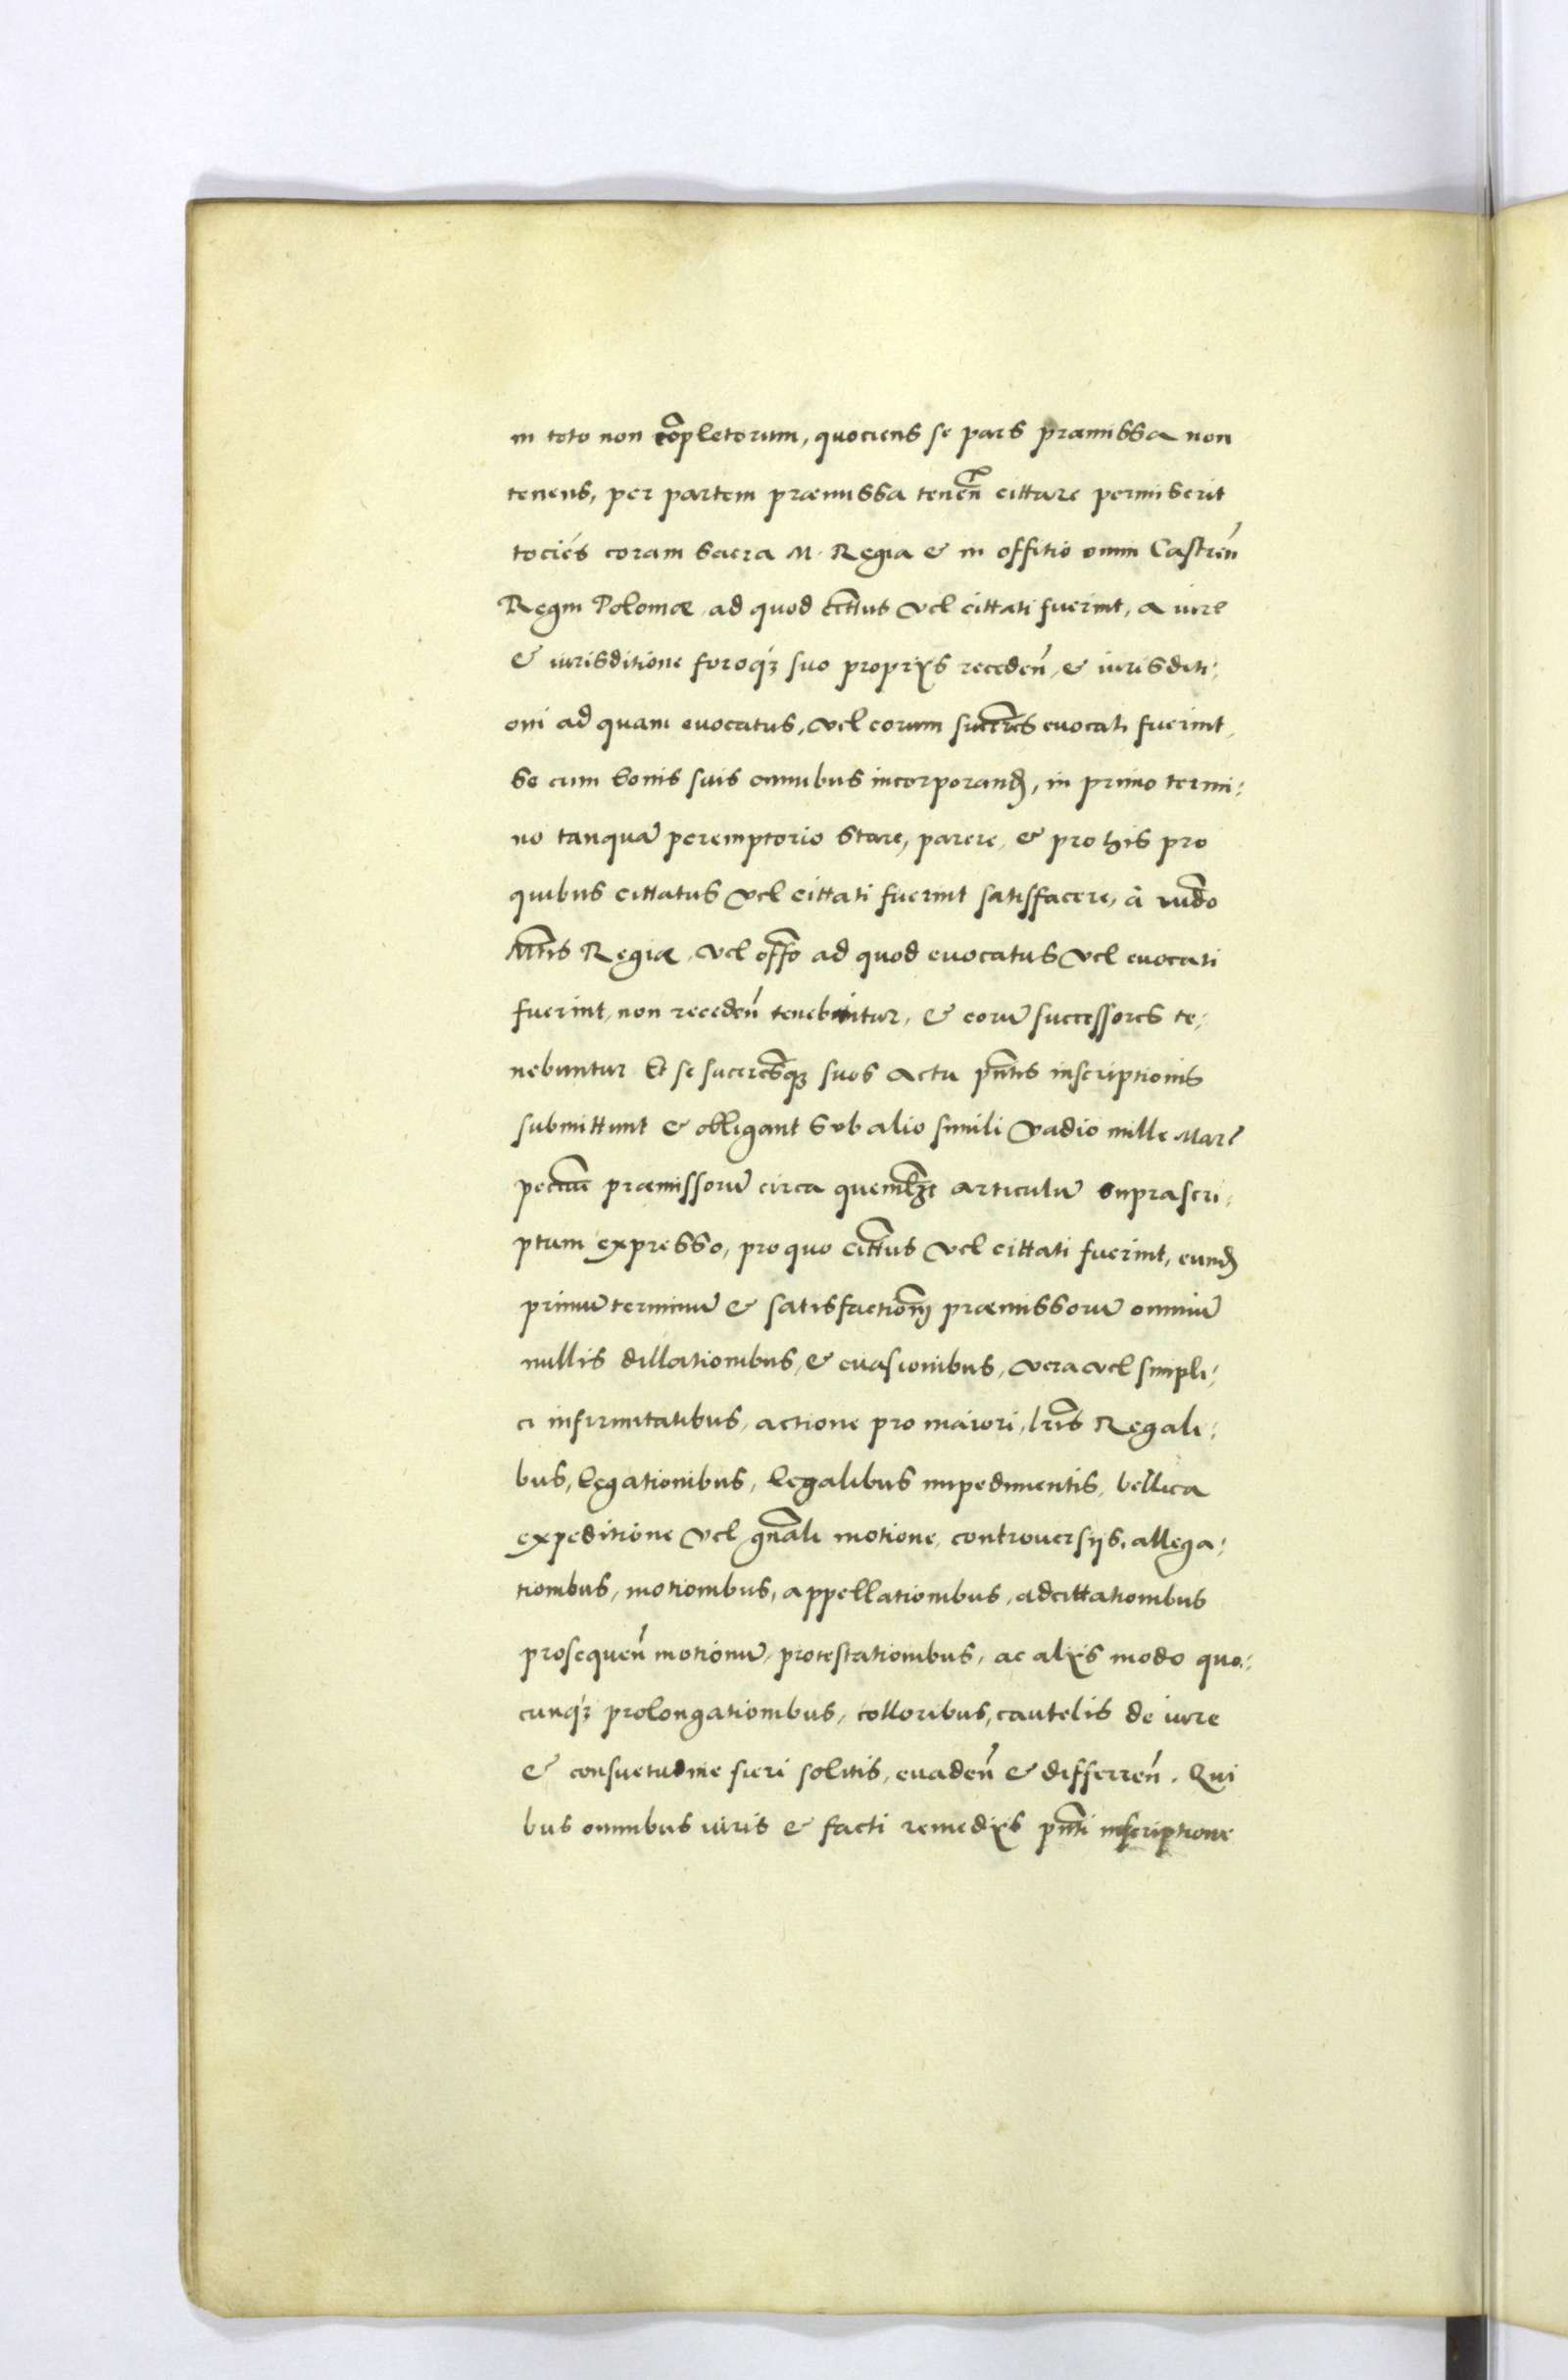 in toto non cõpletorum, quociens se pars præmissa non
tenens, per partem præmissa teneñ cittare permiserit
tociẽs coram Sacra M. Regia & in offitio omni Castreñ
Regni Poloniæ, ad quod cittus vel cittati fuerint, a iure
& iurisditione foroq́ȝ suo proprijs recedeñ, & iurisditi:
oni ad quam evocatus, vel eorum succres evocati fuerint,
se cum bonis suis omnibus incorporand, in primo termi:
no tanquã peremptorio stare, parere, & pro his pro
quibus cittatus vel cittati fuerint satisfacere, à iudo
Mtis Regiæ, vel offo ad quod evocatus vel evocati
fuerint, non recedeñ tenebitur, & eorũ successores te:
nebuntur Et se sucresqȝ suos actu pntis inscriptionis
submittunt & obligant sub alio simili vadio mille Mar
pectum præmissorũ circa quemlȝt articulũ suprascri:
ptum expresso, pro quo cittus vel cittati fuerint, eund
primũ terminũ & satisfactionẽ præmissorũ omniũ
nullis dillationibus, & evasionibus, vera vel simpli:
ci infirmitatibus, actione pro maiori, lris Regali:
bus, legationibus, legalibus impedimentis, bellica
expeditione vel gnali motione, controversijs, allega:
tionibus, motionibus, appellationibus, adcittationibus
prosequeñ motionũ, protestationibus, ac alijs modo quo:
cunq́ȝ prolongationibus, colloribus, cautelis de iure
& consuetudine fieri solitis, evadeñ & differreñ. Qui
bus omnibus iuris & facti remedijs pnti inscriptione